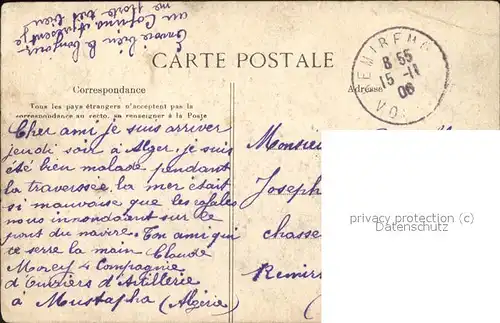 Envoie bien le bonjour
au Cofurno et présent je
me porte très bien
CARTE POSTALE
Correspondance
Tous les pays étrangers n'acceptent pas la
correspondance au recto, se renseigner à la Poste
Adresse
REMIREMO
8 55
15 -11
06
VO
Cher ami je suis arriver
jeudi soir à Alger, je suis
été bien malade pendant
la traverssée, la mer était
si mauvaise que les rafales
nous innondaient sur le
pont du navire. Ton ami qui
te serre la main Claude
Morey 4 Compagnie
d'Ouvriers d'Artillerie
à Mustapha (Algérie)
Monsie
Joseph
chasse
Remir
privacy protection (c)